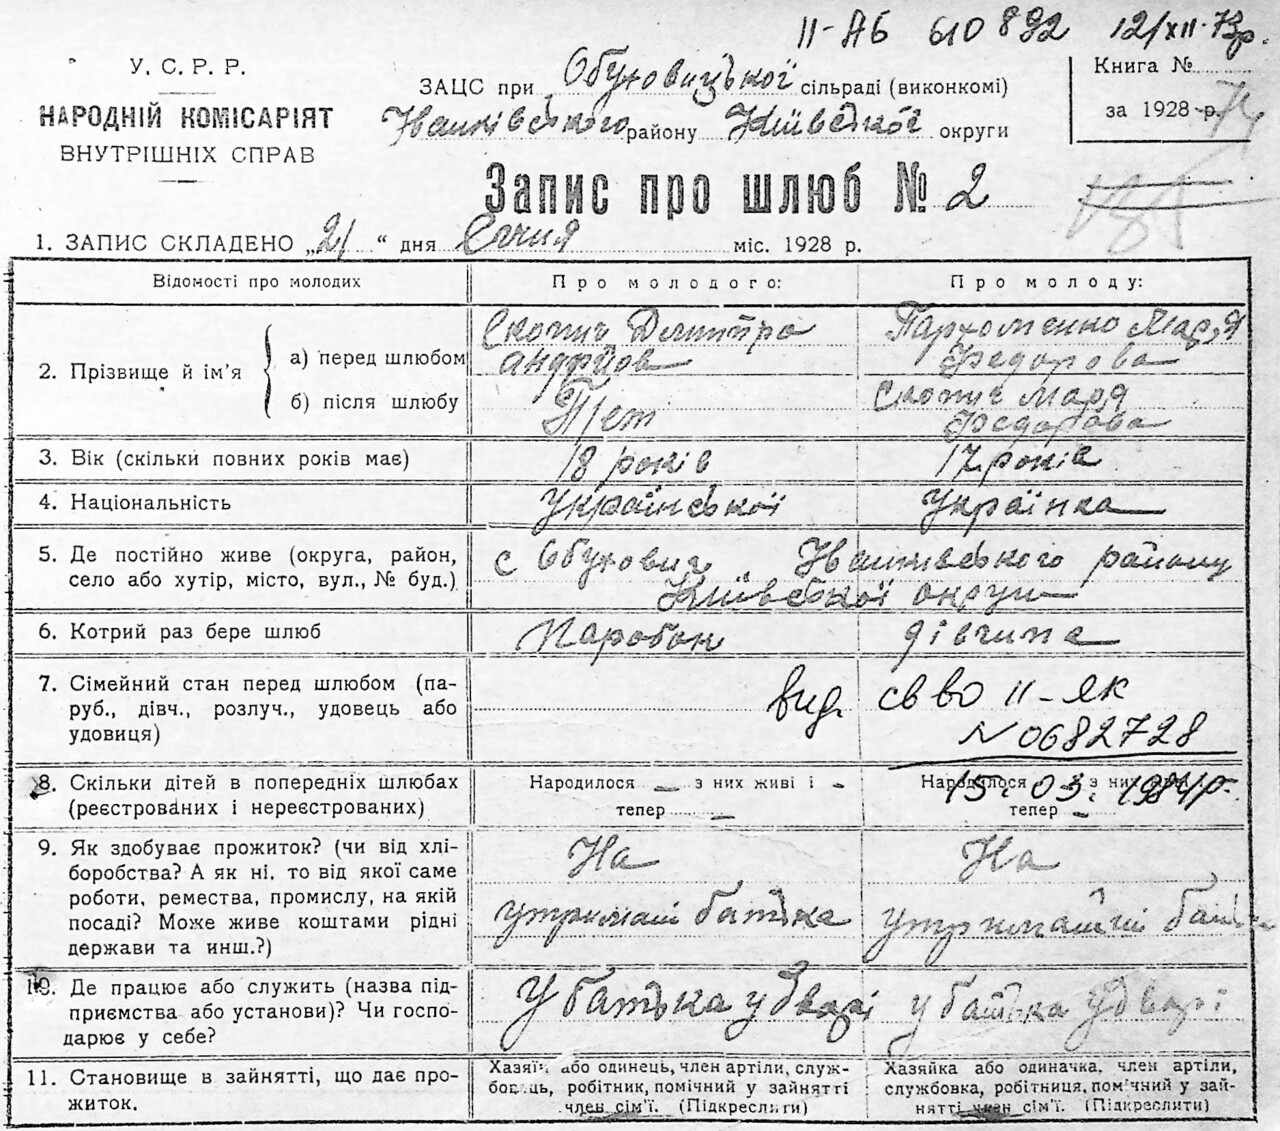 ІІ-АБ 610892 12/XII-73р.
У. С. Р. Р.
НАРОДНІЙ КОМІСАРІЯТ
ВНУТРІШНІХ СПРАВ
ЗАЦС при Обуховицької сільраді (виконкомі)
Іванківського району Київської округи
Книга №
за 1928 р.
Запис про шлюб № 2
1. ЗАПИС СКЛАДЕНО „21“ дня Січня міс. 1928 р.
Відомості про молодих
Про молодого:
Про молоду:
2. Прізвище й ім’я
а) перед шлюбом
Скопич Дмитро
Андріїов
Пархоменко Мар,я
Федорова
б) після шлюбу
Скопич Маря
Федорова
3. Вік (скільки повних років має)
18 років
17 років
4. Національність
Української
Українка
5. Де постійно живе (округа, район,
село або хутір, місто, вул., № буд.)
с Обухович Іванківського району
Київської округи
6. Котрий раз бере шлюб
Паробок
дівчина
7. Сімейний стан перед шлюбом (па-
руб., дівч., розлуч., удовець або
удовиця)
вид. св во ІІ-ЯК
№ 0682728
15. 03. 1984р.
8. Скільки дітей в попередніх шлюбах
(реєстрованих і нереєстрованих)
Народилося – з них живі і –
тепер –
Народилося з них живі
тепер –
9. Як здобуває прожиток? (чи від хлі-
боробства? А як ні, то від якої саме
роботи, ремества, промислу, на якій
посаді? Може живе коштами рідні
держави та инш.?)
На
утримані батька
На
утриманні
10. Де працює або служить (назва під-
приємства або установи)? Чи госпо-
дарює у себе?
У батька у дварі
у батька у дварі
11. Становище в зайнятті, що дає про-
житок.
Хазяїн або одинець, член артіли, служ-
бовець, робітник, помічний у зайнятті
член сім’ї. (Підкреслити)
Хазяйка або одиначка, член артіли,
службовка, робітниця, пом’чний у зай-
нятті член сім’ї. (Підкреслити)